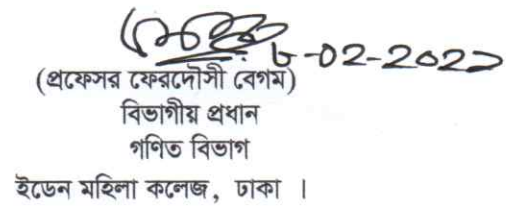 ৮-০২-২০২১
(প্রফেসর ফেরদৌসী বেগম)
বিভাগীয় প্রধান
গণিত বিভাগ
ইডেন মহিলা কলেজ, ঢাকা ।